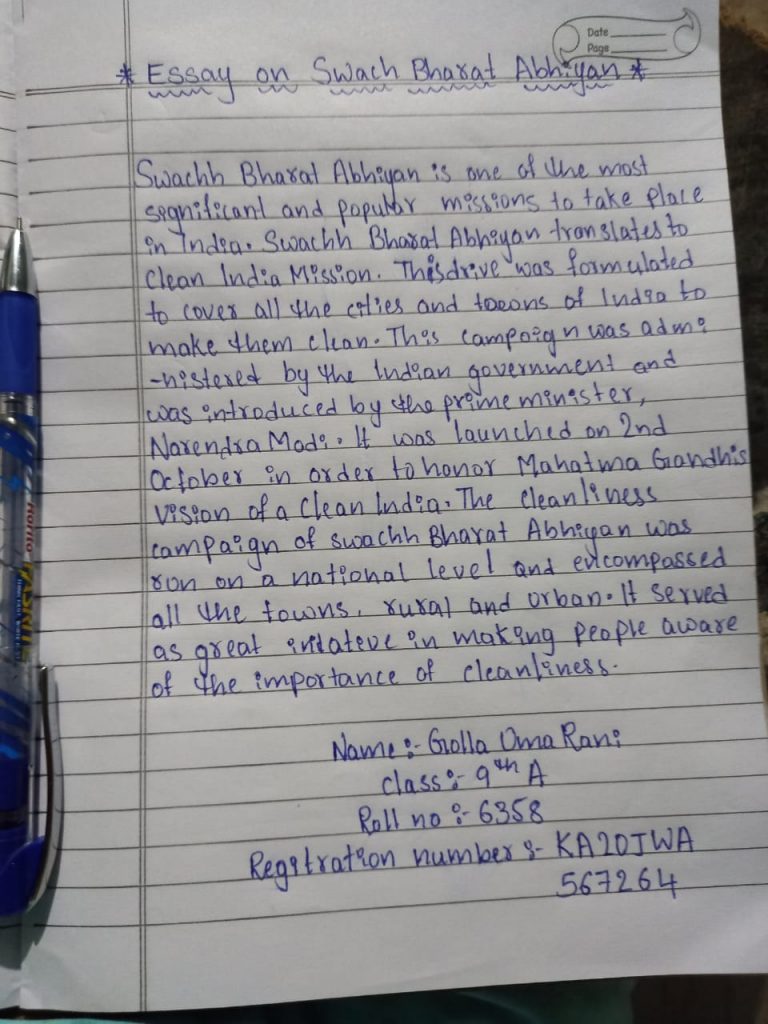 Date
Page
* Essay on Swach Bharat Abhiyan *
Swachh Bharat Abhiyan is one of the most
segnificant and popular missions to take place
in India. Swachh Bharat Abhiyan translates to
Clean India Mission. This drive was formulated
to cover all the cities and towns of India to
make them clean. This campaign was admi
-nistered by the Indian government and
was introduced by the prime minister,
Narendra Modi. It was launched on 2nd
October in order to honor Mahatma Gandhis
vision of a Clean India. The cleanliness
campaign of swachh Bharat Abhiyan was
run on a national level and encompassed
all the towns, rural and urban. It served
as great in making people aware
of the importance of cleanliness.
Name :- Golla Uma Rani
class :- 9th A
Roll no :- 6358
Registration number :- KA20JWA
567264